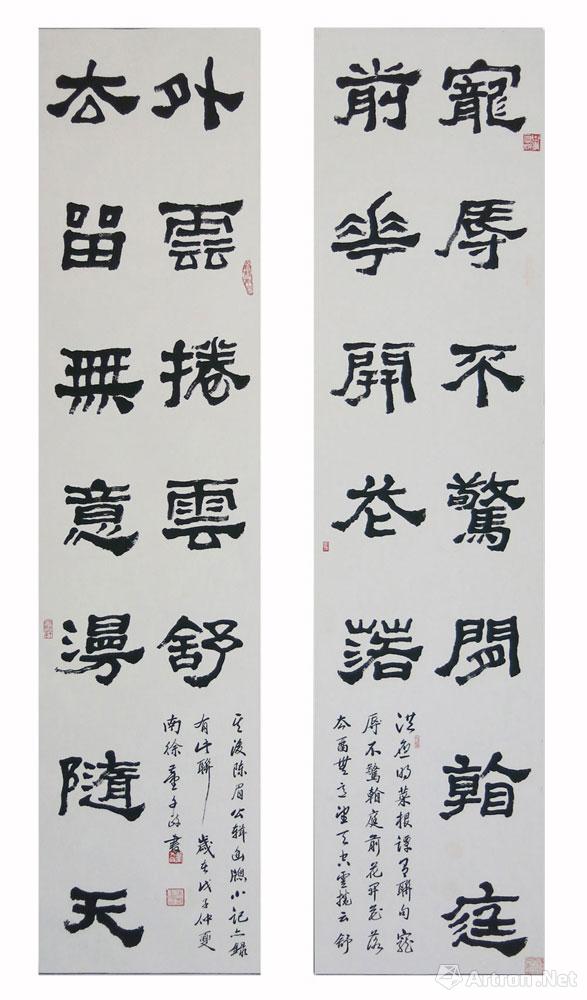 寵辱不驚閒看庭
前花開花落
洪應明菜根譚有聯句寵
辱不驚看庭前花開花落
去留無意望天空雲捲云舒
外雲捲雲舒
去留無意漫隨天
其後陳眉公輯幽窗小記亦錄
有此聯 歲在戊子仲夏
南徐董書
Artron.Net